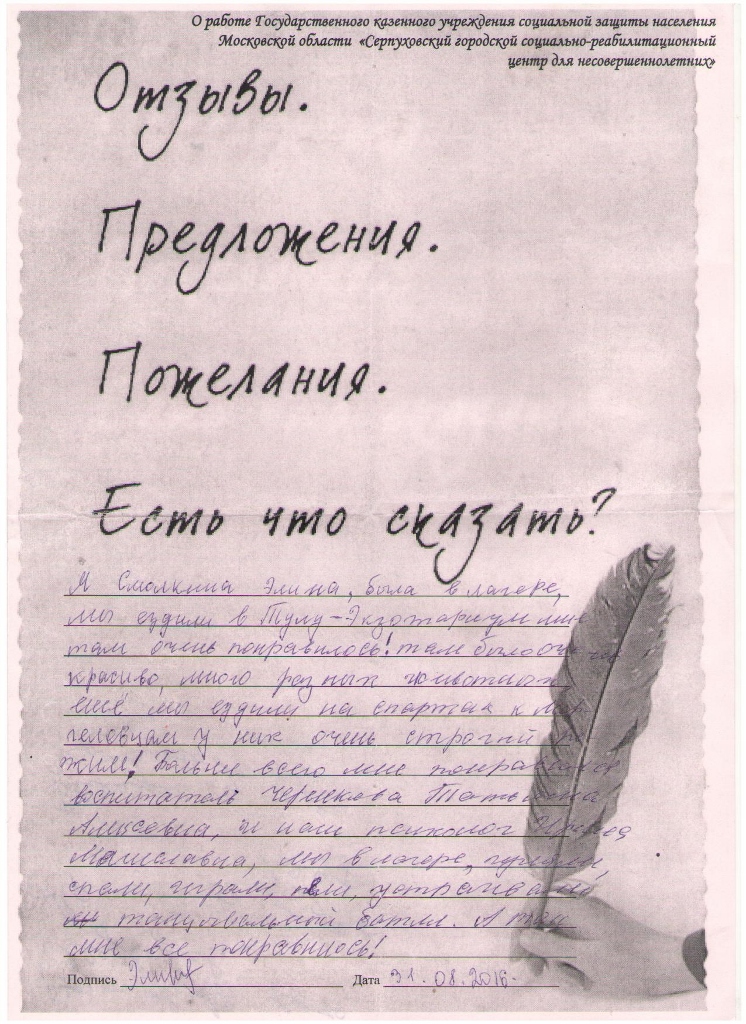 О работе Государственного казенного учреждения социальной защиты населения
Московской области «Серпуховский городской социально-реабилитационный
центр для несовершеннолетних»
Отзывы.
Предложения.
Пожелания.
Есть что сказать?
Я Смолкина Элина, была в лагере,
мы ездили в Тулу-Экзотариум мне
там очень понравилось! там было очень
красиво, много разных животных
ещё мы ездили на спартак к мор
человцам у них очень строгий ре
жим! Больше всего мне понравился
воспитатель Черненкова Татьяна
Алексовна, и наш психолог
мы в лагере, гуляли,
спали, играли, пели, устраивали
танцовальный батлл. А так
мне все понравилось!
Подпись Элина Дата 31.08.2016